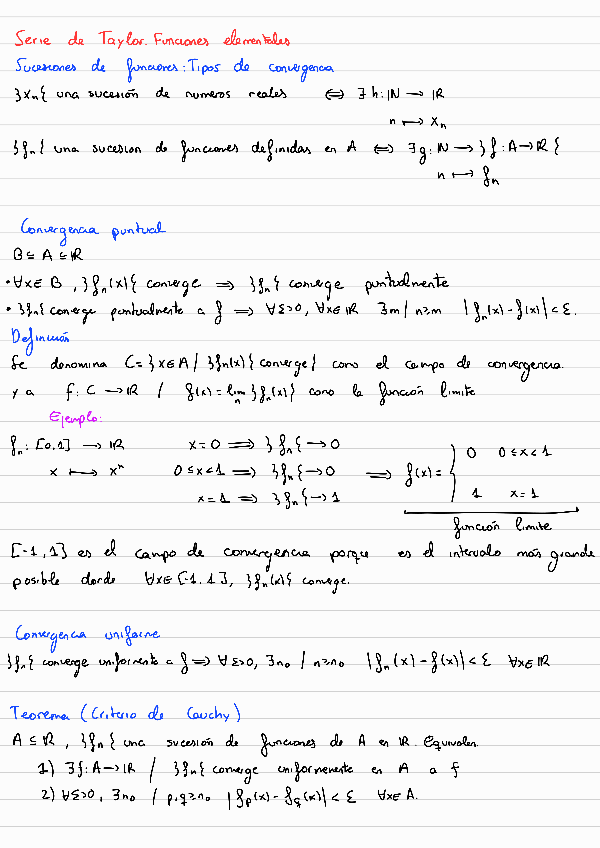 Serie de Taylor. Funciones elementales
Sucesiones de funciones: Tipos de convergencia
}xₙ{ una sucesión de numeros reales ⟺ ∃ h: ℕ → ℝ
n ⟼ xₙ
}fₙ{ una sucesion de funciones definidas en A ⟺ ∃ g: ℕ → } f: A → ℝ {
n ⟼ fₙ
Convergencia puntual
B ⊆ A ⊆ ℝ
• ∀x ∈ B, }fₙ(x){ converge ⟹ }fₙ{ converge puntualmente
• }fₙ{ converge puntualmente a f ⟹ ∀ε>0, ∀x∈ℝ ∃m / n≥m |fₙ(x) - f(x)| < ε.
Definición
Se denomina C = }x ∈ A / }fₙ(x){ converge{ como el campo de convergencia.
y a f: C → ℝ / f(x) = limₙ }fₙ(x){ como la función limite
Ejemplo:
fₙ: [0,1] → ℝ x = 0 ⟹ }fₙ{ → 0
x ⟼ xⁿ 0 ≤ x < 1 ⟹ }fₙ{ → 0 ⟹ f(x) = { 0 0 ≤ x < 1
x = 1 ⟹ }fₙ{ → 1 1 x = 1
función limite
[-1,1] es el campo de convergencia porque es el intervalo más grande
posible donde ∀x∈[-1,1], }fₙ(x){ converge.
Convergencia uniforme
}fₙ{ converge uniformente a f ⟹ ∀ε>0, ∃n₀ / n≥n₀ |fₙ(x) - f(x)| < ε ∀x∈ℝ
Teorema (Criterio de Cauchy)
A ⊆ ℝ, }fₙ{ una sucesión de funciones de A en ℝ. Equivalen.
1) ∃f: A → ℝ / }fₙ{ converge uniformemente en A a f
2) ∀ε>0, ∃n₀ / p,q≥n₀ |fₚ(x) - f_q(x)| < ε ∀x∈A.